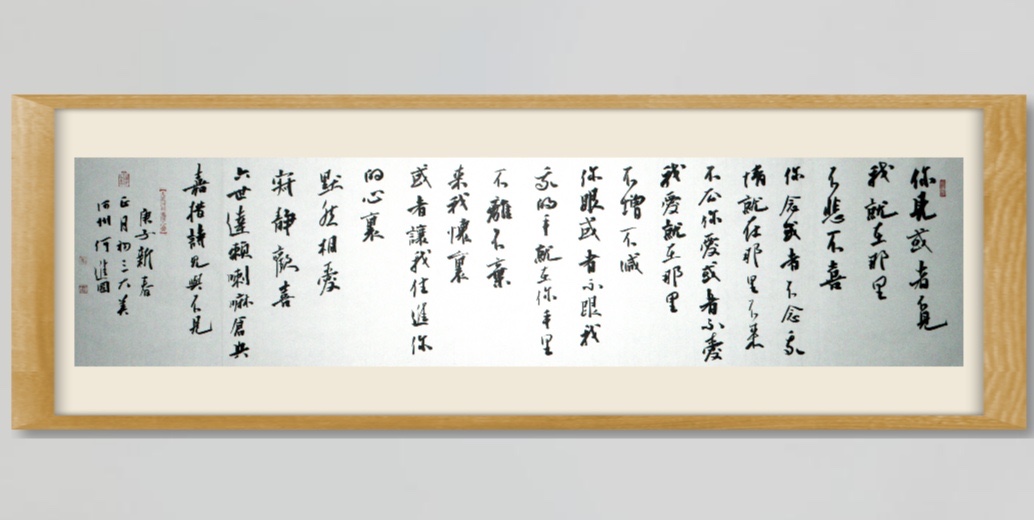 你見或者不見
我就在那里
不悲不喜
你念或者不念我
情就在那里不来
不去你愛或者不愛
我愛就在那里
不增不减
你跟或者不跟我
我的手就在你手里
不離不棄
来我懷裏
或者讓我住進你
的心裏
默然相愛
寂靜歡喜
六世達賴喇嘛倉央
嘉措詩見與不見
庚子新春
正月初三大美